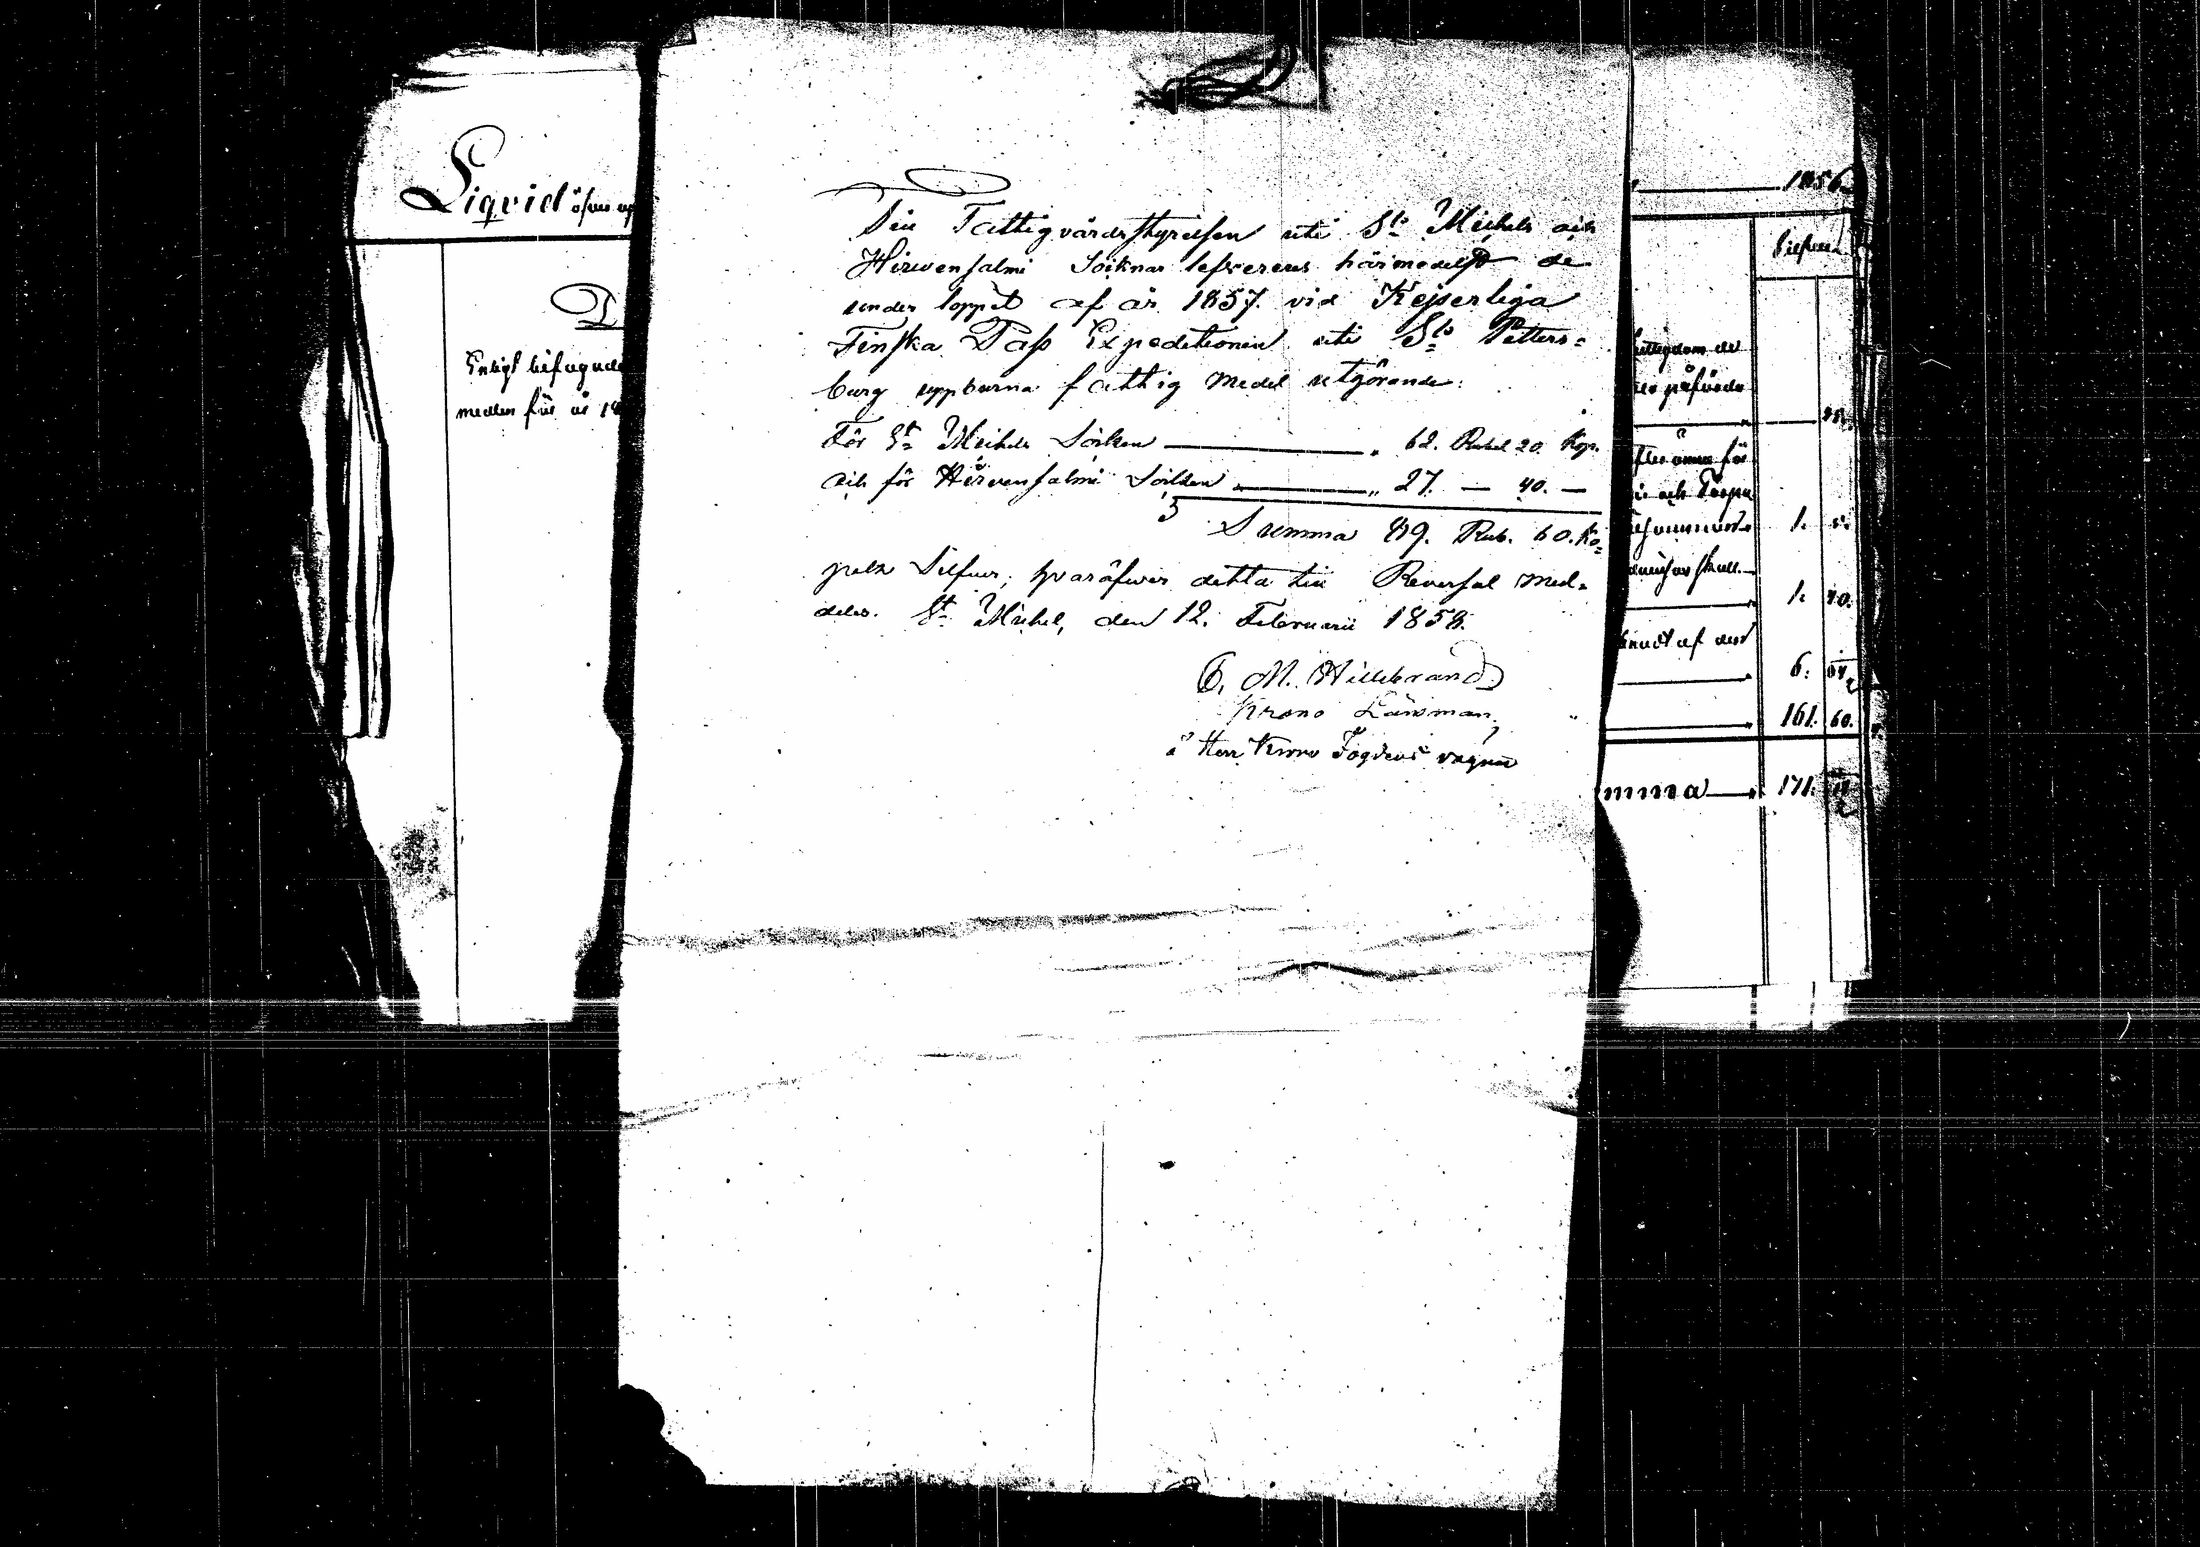 Liqvid öfver
D
Enligt bifogade
medlen för år 18
Till Fattigvårdsstyrelsen uti S:t Michels och
Hirvensalmi Socknar lefvereres härmedelst de
under loppet af år 1857. vid Kejserliga
Finska Pass Expeditionen uti S:t Petters=
burg uppburna fattig medel utgörande:
För S:t Michels Socken — „ 62. Rubel 20. Kop.
och för Hirvensalmi Socken — „ 27. — 40. —
Summa 89. Rub. 60. Ko=
pek Silfver, hvaröfver detta till Reversal med=
deles. S:t Michel, den 12. Februarii 1858.
C. M. Hillebrand
Krono Länsman,
å Herr Krono Fogdens vägnar
1856.
Silfver.
påförde
för
och
1.
skull
1. 40.
af
6.
161. 60.
mma — 171.